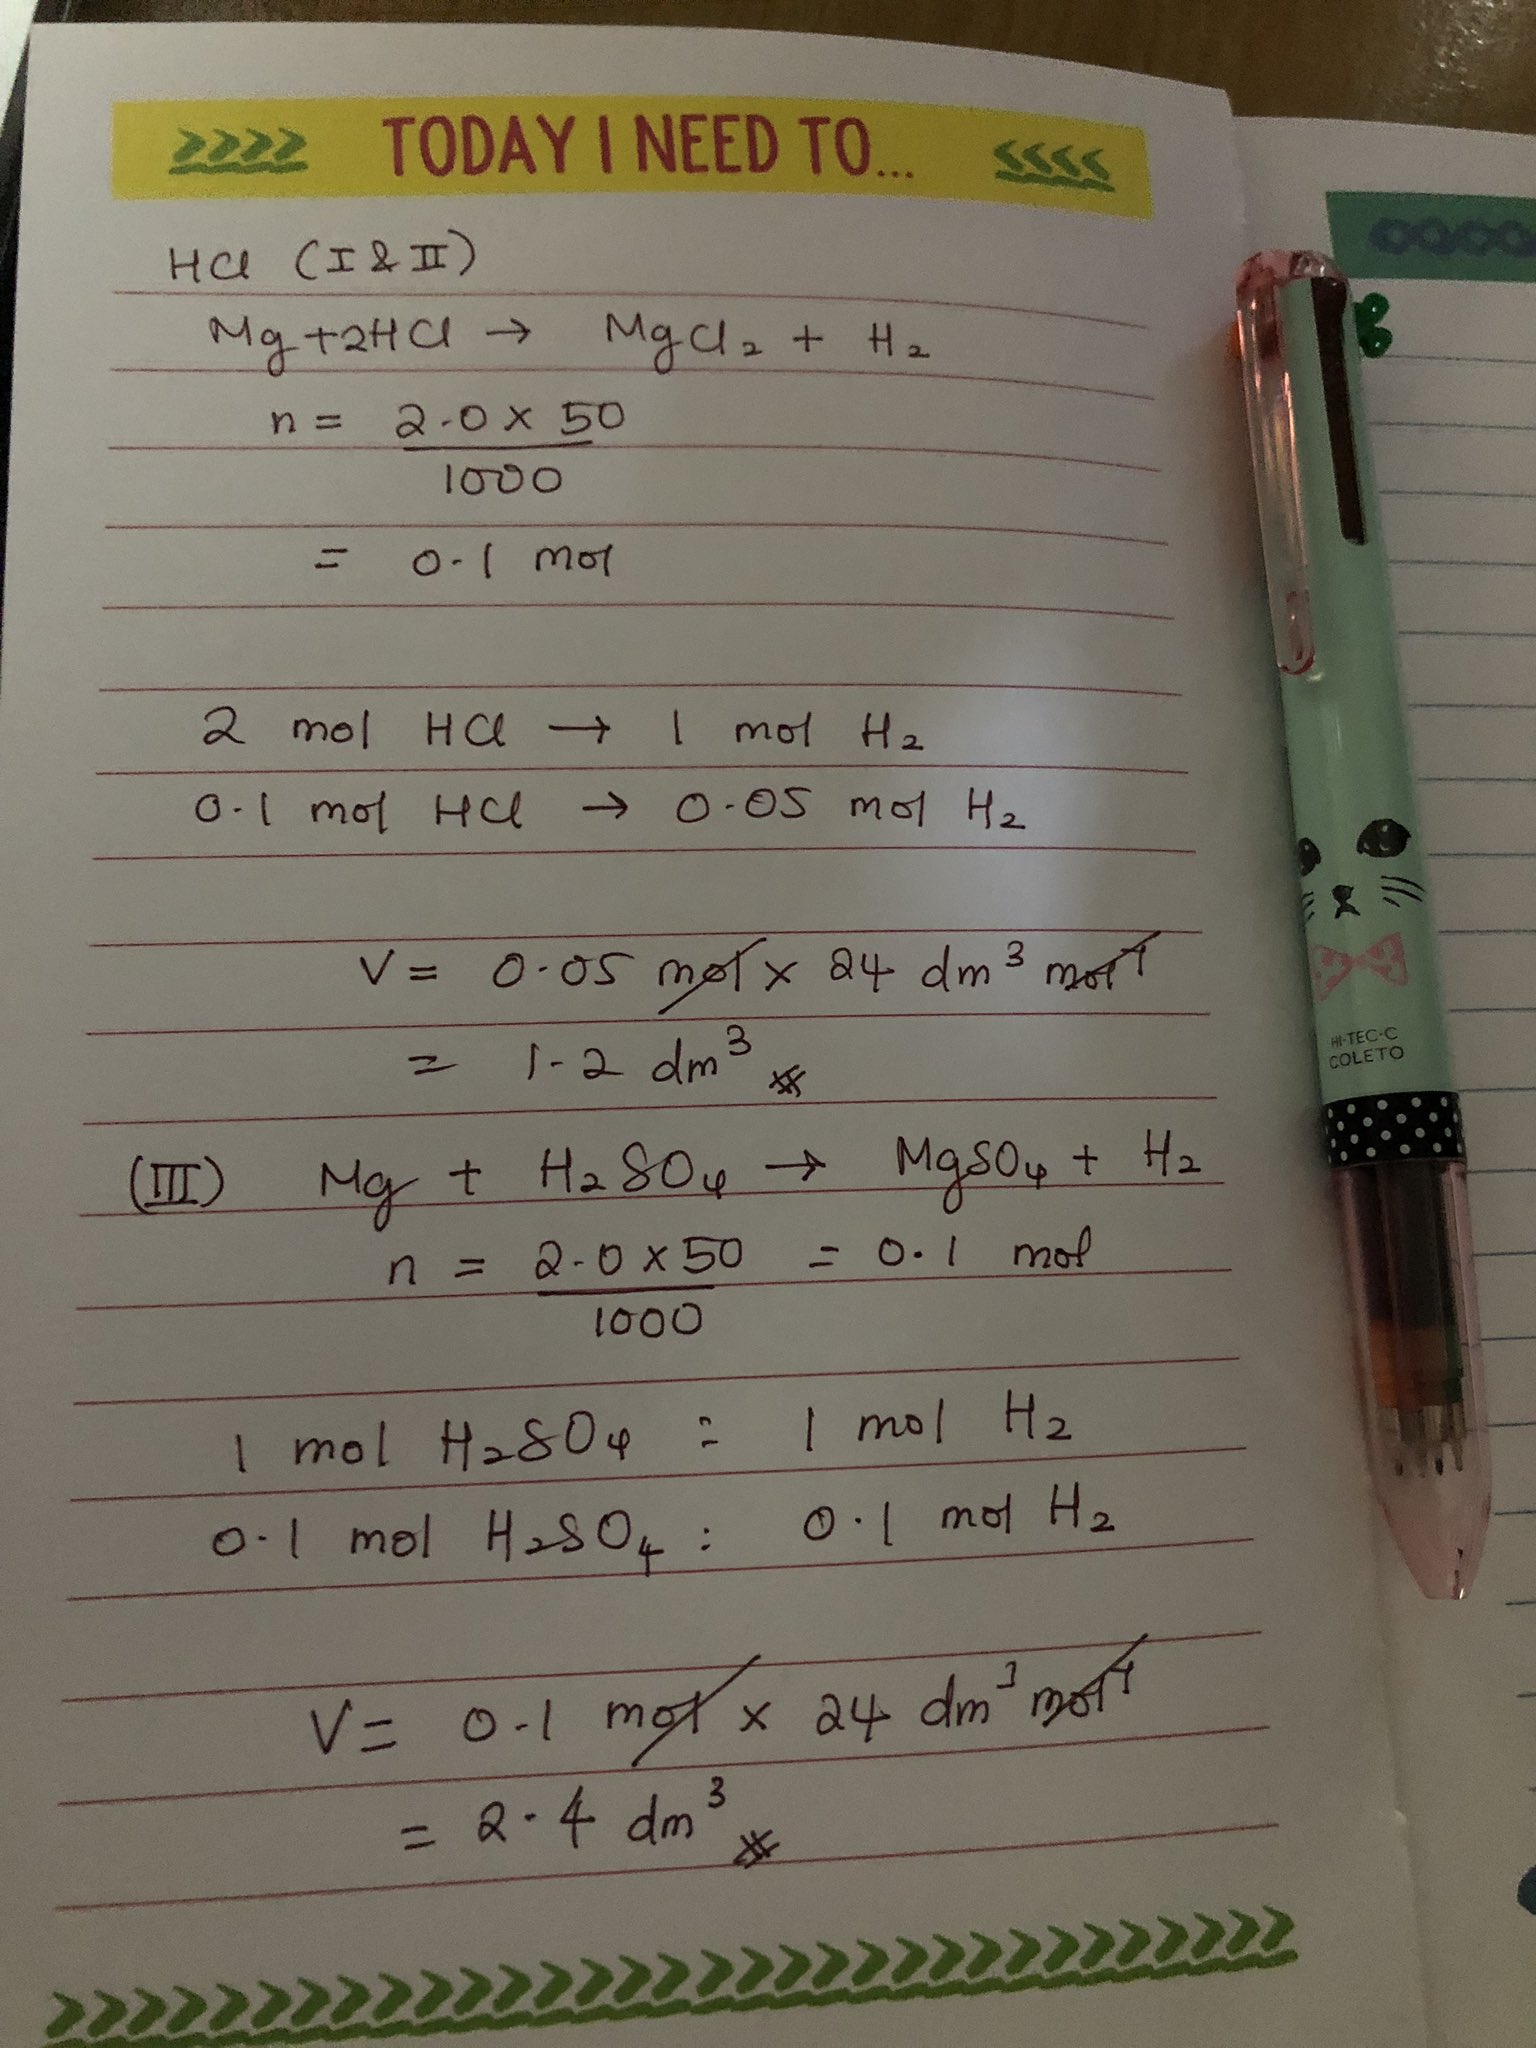 TODAY I NEED TO...
HCl (I & II)
Mg + 2HCl → MgCl₂ + H₂
n = 2.0 x 50
1000
= 0.1 mol
2 mol HCl → 1 mol H₂
0.1 mol HCl → 0.05 mol H₂
V = 0.05 mol x 24 dm³ mol⁻¹
= 1.2 dm³
(III) Mg + H₂SO₄ → MgSO₄ + H₂
n = 2.0 x 50 = 0.1 mol
1000
1 mol H₂SO₄ : 1 mol H₂
0.1 mol H₂SO₄ : 0.1 mol H₂
V = 0.1 mol x 24 dm³ mol⁻¹
= 2.4 dm³
HI-TEC-C
COLETO